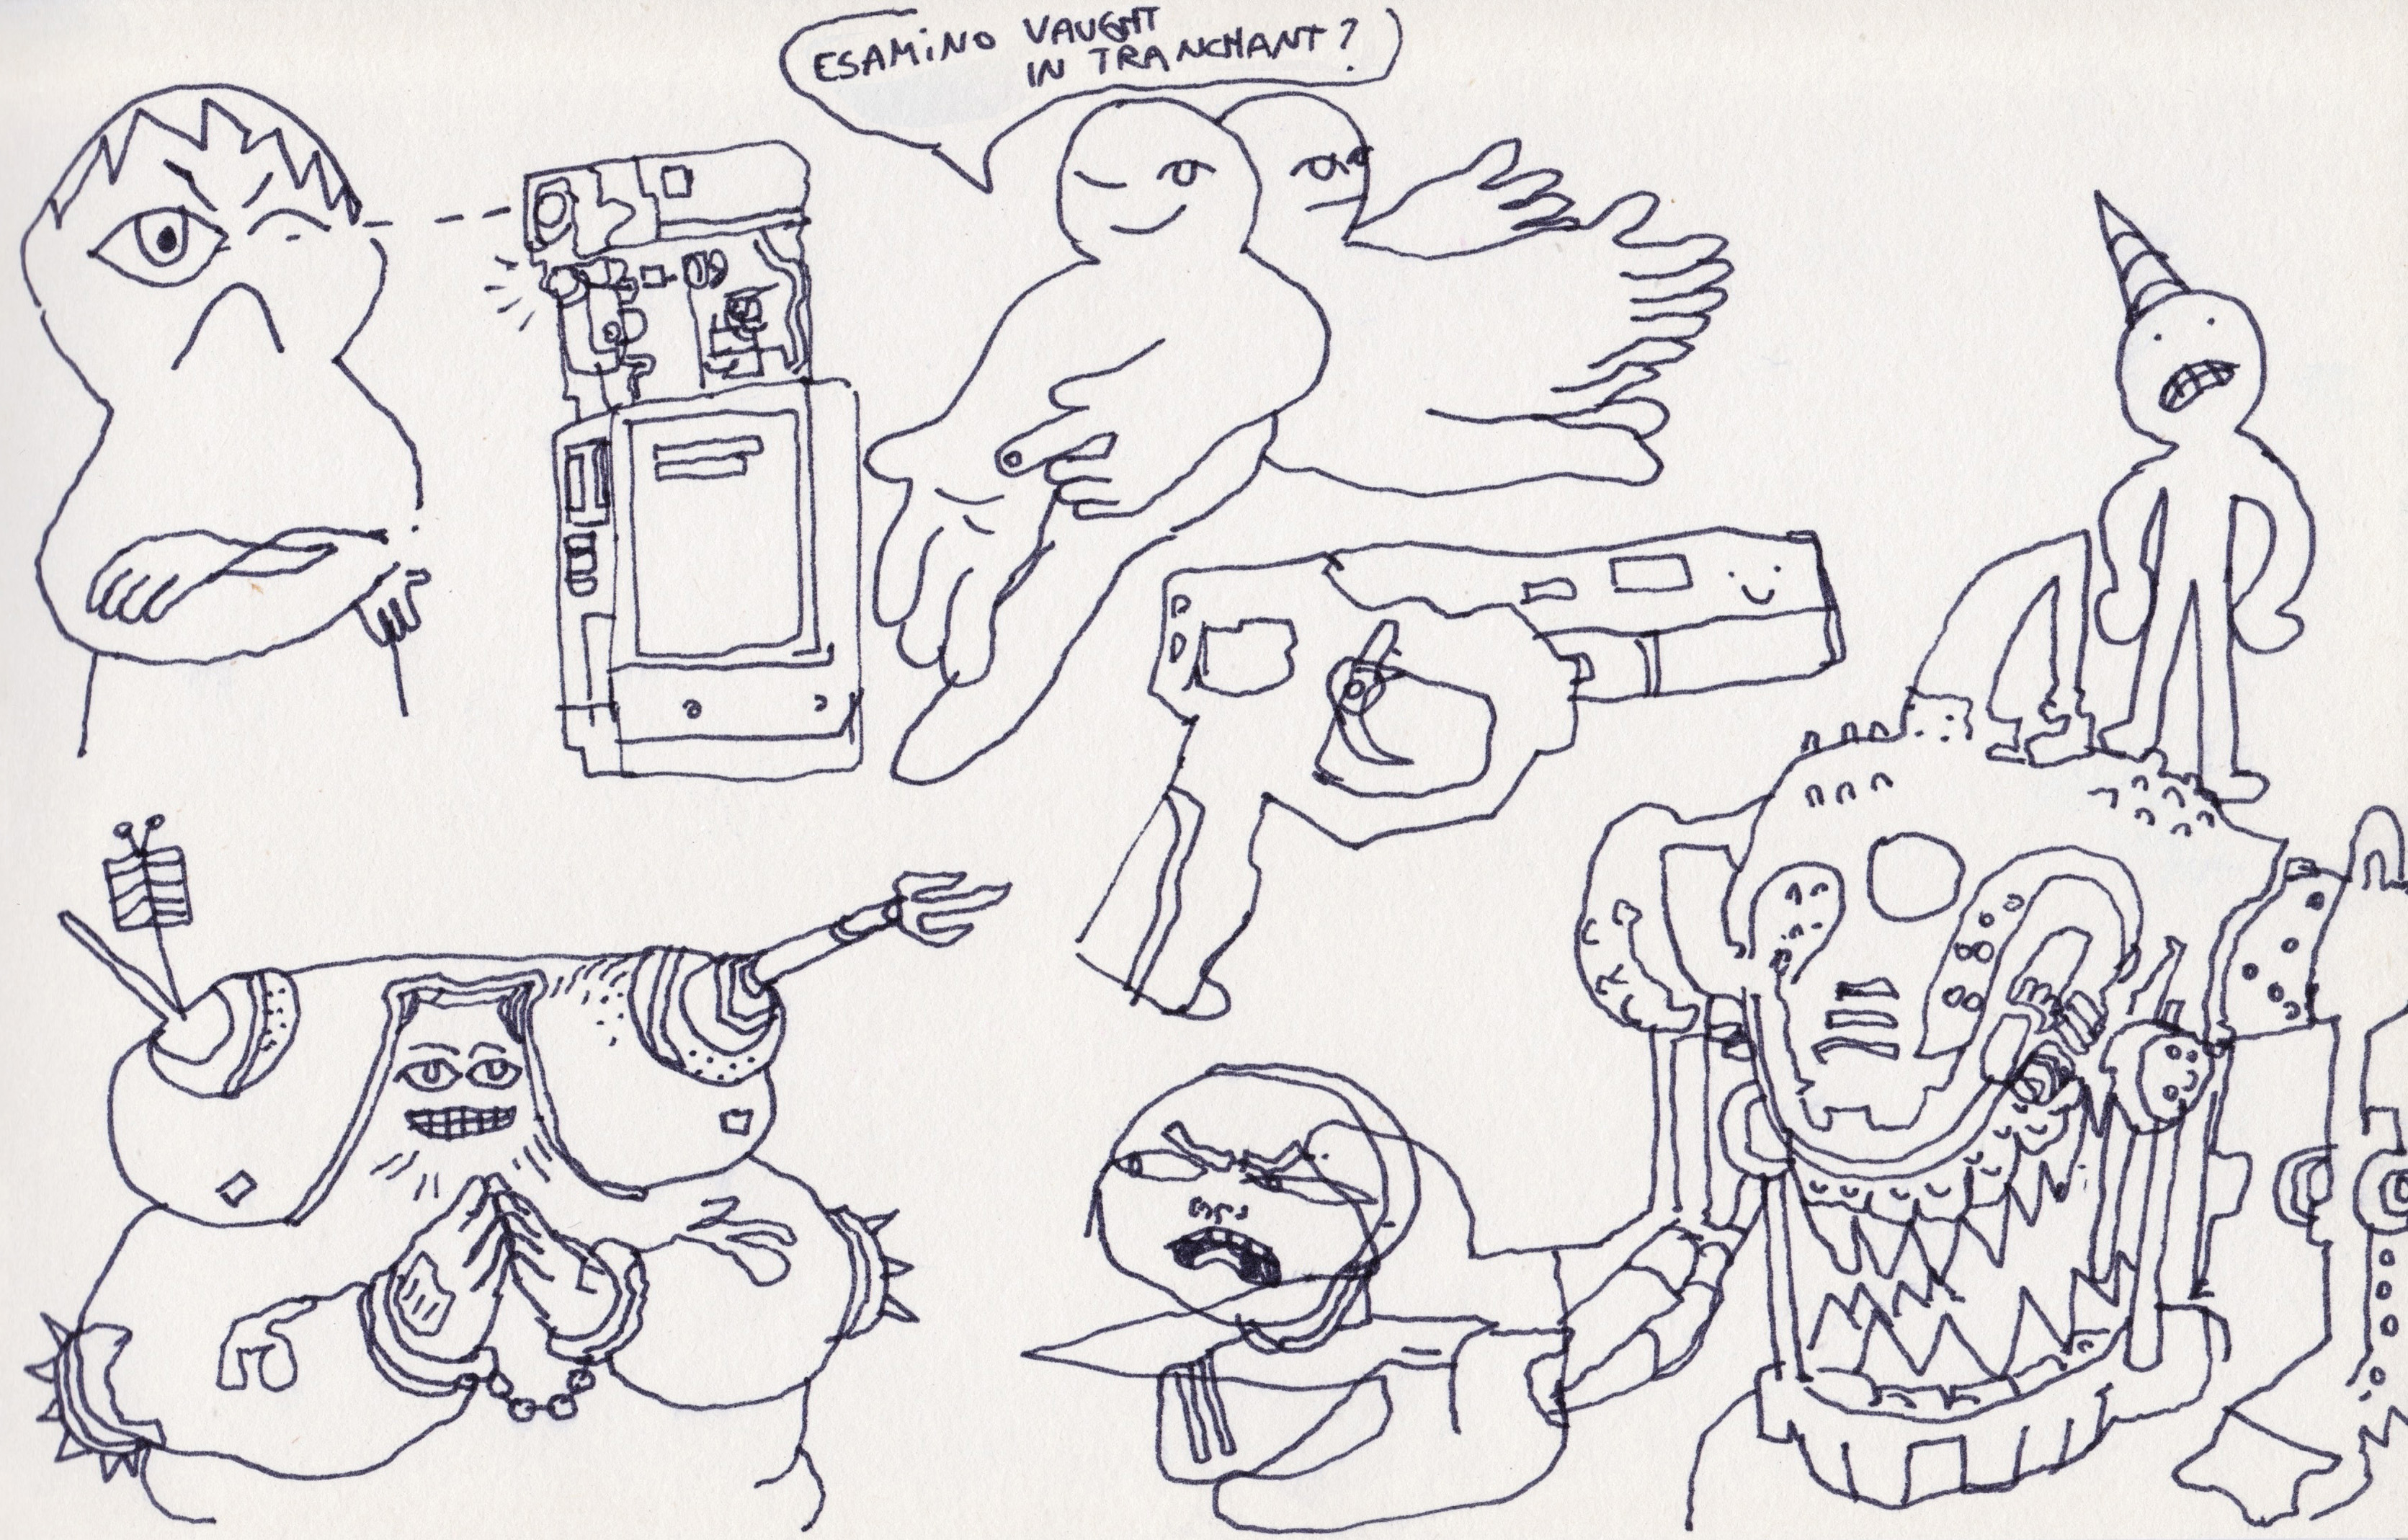 ESAMiNO VAUGHT
IN TRANCHANT?